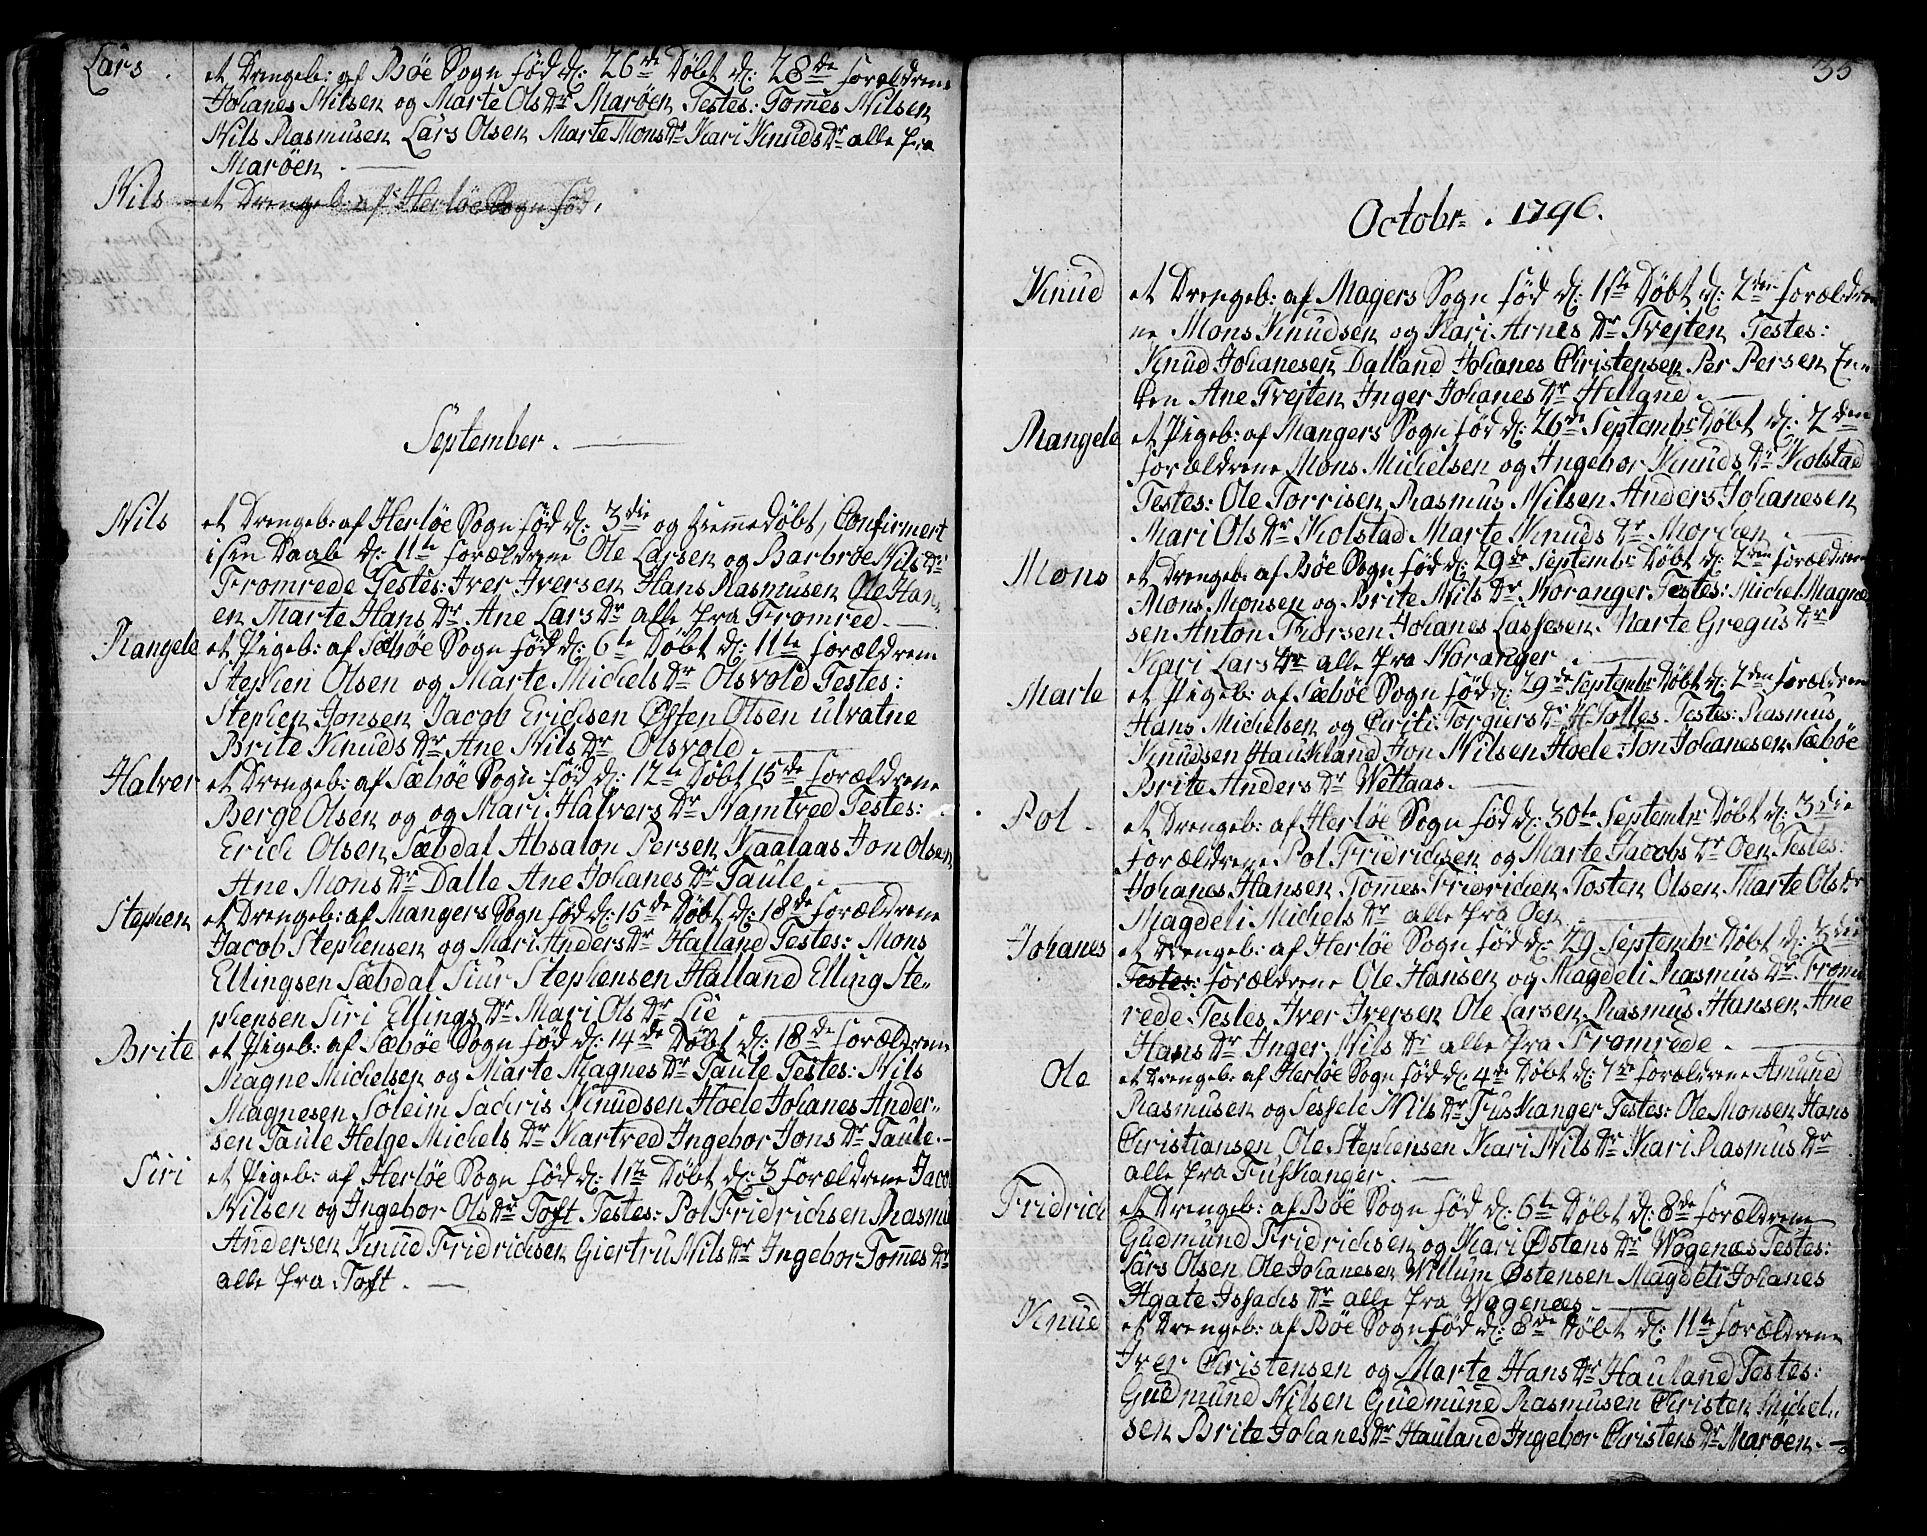 Lars . et Drengeb: af Böe Sogn föd d: 26de Döbt d: 28de forældrene
Johanes Nilsen og Marte Ols Dr Maröen Testes: Tomes Nilsen
Nils Rasmusen Lars Olsen Marte Mons Dr Kari Knuds Dr alle fra
Maröen .
Nils - et Drengeb: af Herlöe Sogn föd,
September .
Nils et Drengeb: af Herlöe Sogn föd d: 3die og hiemedöbt, Confirmert
i sin Daab d: 11te forældrene Ole Larsen og Barbroe Nils Dr
Fromrede Testes: Iver Iversen Hans Rasmusen Ole Hans
en Marte Hans Dr Ane Lars Dr alle fra Fromred .
Rangele et Pigeb: af Sæböe Sogn föd d: 6te Döbt d: 11te forældrene
Stephen Olsen og Marte Michels Dr Olsvold Testes:
Stephen Jonsen Jacob Erichsen Östen Olsen Ulvatne
Brite Knuds Dr Ane Nils Dr Olsvold .
Halver et Drengeb: af Sæböe Sogn föd d: 12te Döbt 15de forældrene
Berge Olsen og og Mari Halvers Dr Namtved Testes:
Erich Olsen Sæbdal Absalon Persen Kaalaas Jon Olsen
Ane Mons Dr Dalle Ane Johanes Dr Taule .
Stephen et Drengeb: af Mangers Sogn föd d: 15de Döbt d: 18de forældrene
Jacob Stephensen og Mari Anders Dr Halland Testes: Mons
Ellingsen Sæbdal Siur Stephensen Halland Elling Ste-
phensen Siri Ellings Dr Mari Ols Dr Lie .
Brite et Pigeb: af Sæböe Sogn föd d: 14de Döbt d: 18de forældrene
Magne Michelsen og Marte Magnes Dr Taule Testes: Nils
Magnesen Soleim Sachris Knudsen Hoele Johanes Ander-
sen Taule Helge Michels Dr Kartved Ingebor Jons Dr Taule .
Siri et Pigeb: af Herlöe Sogn föd d: 11te Döbt d: 3 forældrene Jaco
Nilsen og Ingebor Ols Dr Toft Testes: Pol Fridrichsen Rasmu
Andersen Knud Fridrichsen Giertru Nils Dr Ingebor Tomes Dr
alle fra Toft .
35
Octobr . 1796.
Knud et Drengeb: af Magers Sogn föd d: 1ste Döbt d: 2den foræld
ne Mons Knudsen og Kari Arnes Dr Tvejten Testes:
Knud Johanesen Dalland Johanes Christensen Per Persen En-
ken Ane Tvejten Inger Johanes Dr Helland .
Rangele et Pigeb: af Mangers Sogn föd d: 26de Septembr Döbt d: 2den
forældrene Mons Michelsen og Ingebor Knuds Dr Kolstad
Testes: Ole Torrisen Rasmus Nilsen Anders Johanesen
Mari Ols Dr Kolstad Marte Knuds Dr Morken .
Mons et Drengeb: af Böe Sogn föd d: 29de Septembr Döbt d: 2den forældrene
Mons Monsen og Brite Nils Dr Noranger Testes: Michel Magne
sen Anton Thorsen Johanes Lassesen Marte Gregus Dr
Kari Lars Dr alle fra Noranger .
Marte et Pigeb: af Sæböe Sogn föd d: 29de Septembr Döbt d: 2den forældrene
Hans Michelsen og Chriti Torgiers Dr H Toftes Testes: Rasmus
Knudsen Haukland Jon Nilsen Hoele Jon Johanesen Sæböe
Brite Anders Dr Wettaas .
Pol . et Drengeb: af Herlöe Sogn föd d: 30te Septembr Döbt d: 3die
forældrene Pol Fridrichsen og Marte Jacobs Dr Oen Testes:
Johanes Hansen Tomes Fridrichen Tosten Olsen Marte Ols Dr
Magdeli Michels Dr alle fra Oen .
Johanes et Drengeb: af Herlöe Sogn föd d: 29 Septembr Döbt d: 3die
Testes: forældrene Ole Hansen og Magdeli Rasmus Dr From
rede Testes Iver Iversen Ole Larsen Rasmus Hansen Ane
Hans Dr Inger Nils Dr alle fra Fromrede .
Ole et Drengeb: af Herlöe Sogn föd d: 4de Döbt d: 7de forældrene Amund
Rasmusen og Sessele Nils Dr Fuskanger Testes: Ole Monsen Hans
Christiansen Ole Stephensen Kari Nils Dr Kari Rasmus Dr
alle fra Fuskanger .
Fridrich et Drengeb: af Böe Sogn föd d: 6te Döbt d: 8de forældrene
Gudmund Fridrichsen og Kari Östens Dr Wogenæs Testes:
Lars Olsen Ole Johanesen Willum Östensen Magdeli Johanes
Agate Issachs Dr alle fra Wogenæs .
Knud et Drengeb: af Böe Sogn föd d: 8de Döbt d: 11te forældrene
Iver Christensen og Marte Hans Dr Hauland Testes:
Gudmund Nilsen Gudmund Rasmusen Christen Michel-
sen Brite Johanes Dr Hauland Ingebor Christens Dr Maroen .